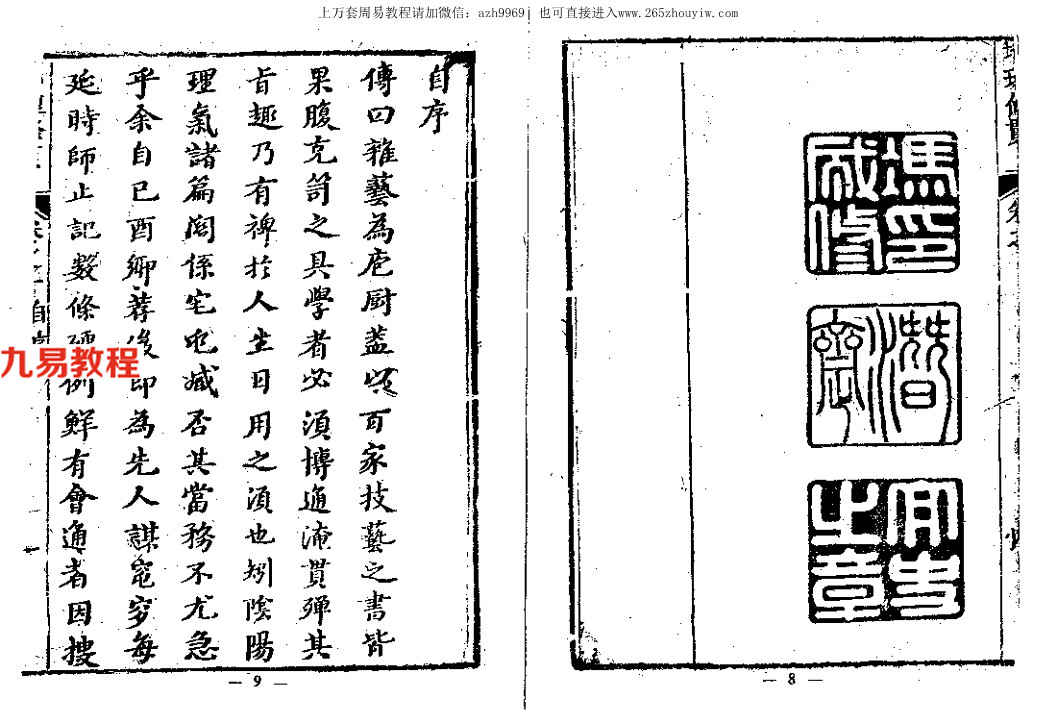 上万套周易教程请加微信：azh9969，也可直接进入www.265zhouyiw.com
馮印成修
潛齋
之章
— 8 —
自序
傳曰雜藝為庖厨盖以百家技藝之書皆
果腹充笥之具學者必須博通淹貫殫其
旨趣乃有裨於人生日用之須也矧陰陽
理氣諸篇関係宅兆臧否其當務不尤急
乎余自己酉鄉荐後即為先人謀窀穸每
延時師止記數條硬例鮮有會通者因搜
九易教程
— 9 —